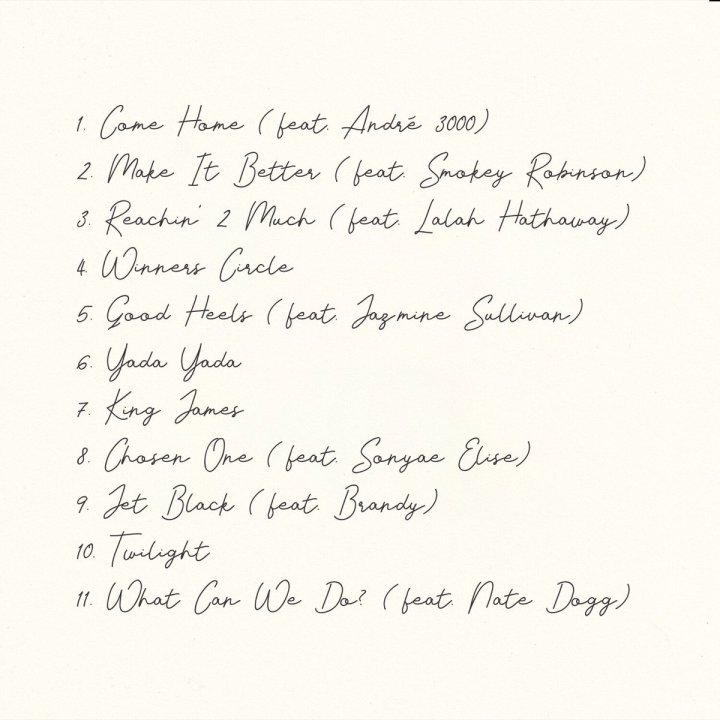 1. Come Home (feat. André 3000)
2. Make It Better (feat. Smokey Robinson)
3. Reachin' 2 Much (feat. Lalah Hathaway)
4. Winners Circle
5. Good Heels (feat. Jazmine Sullivan)
6. Yada Yada
7. King James
8. Chosen One (feat. Sonyae Elise)
9. Jet Black (feat. Brandy)
10. Twilight
11. What Can We Do? (feat. Nate Dogg)